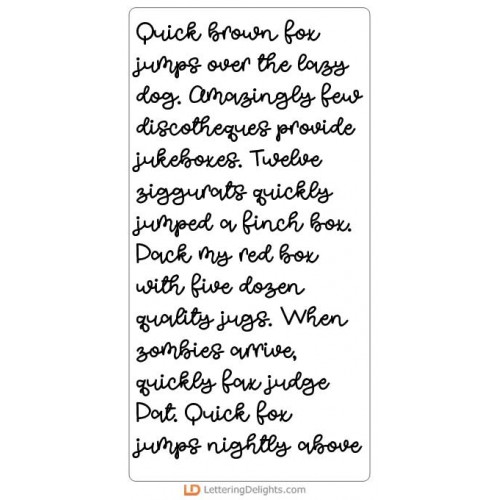 Quick brown fox
jumps over the lazy
dog. Amazingly few
discotheques provide
jukeboxes. Twelve
ziggurats quickly
jumped a finch box.
Pack my red box
with five dozen
quality jugs. When
zombies arrive,
quickly fax judge
Pat. Quick fox
jumps nightly above
LD LetteringDelights.com